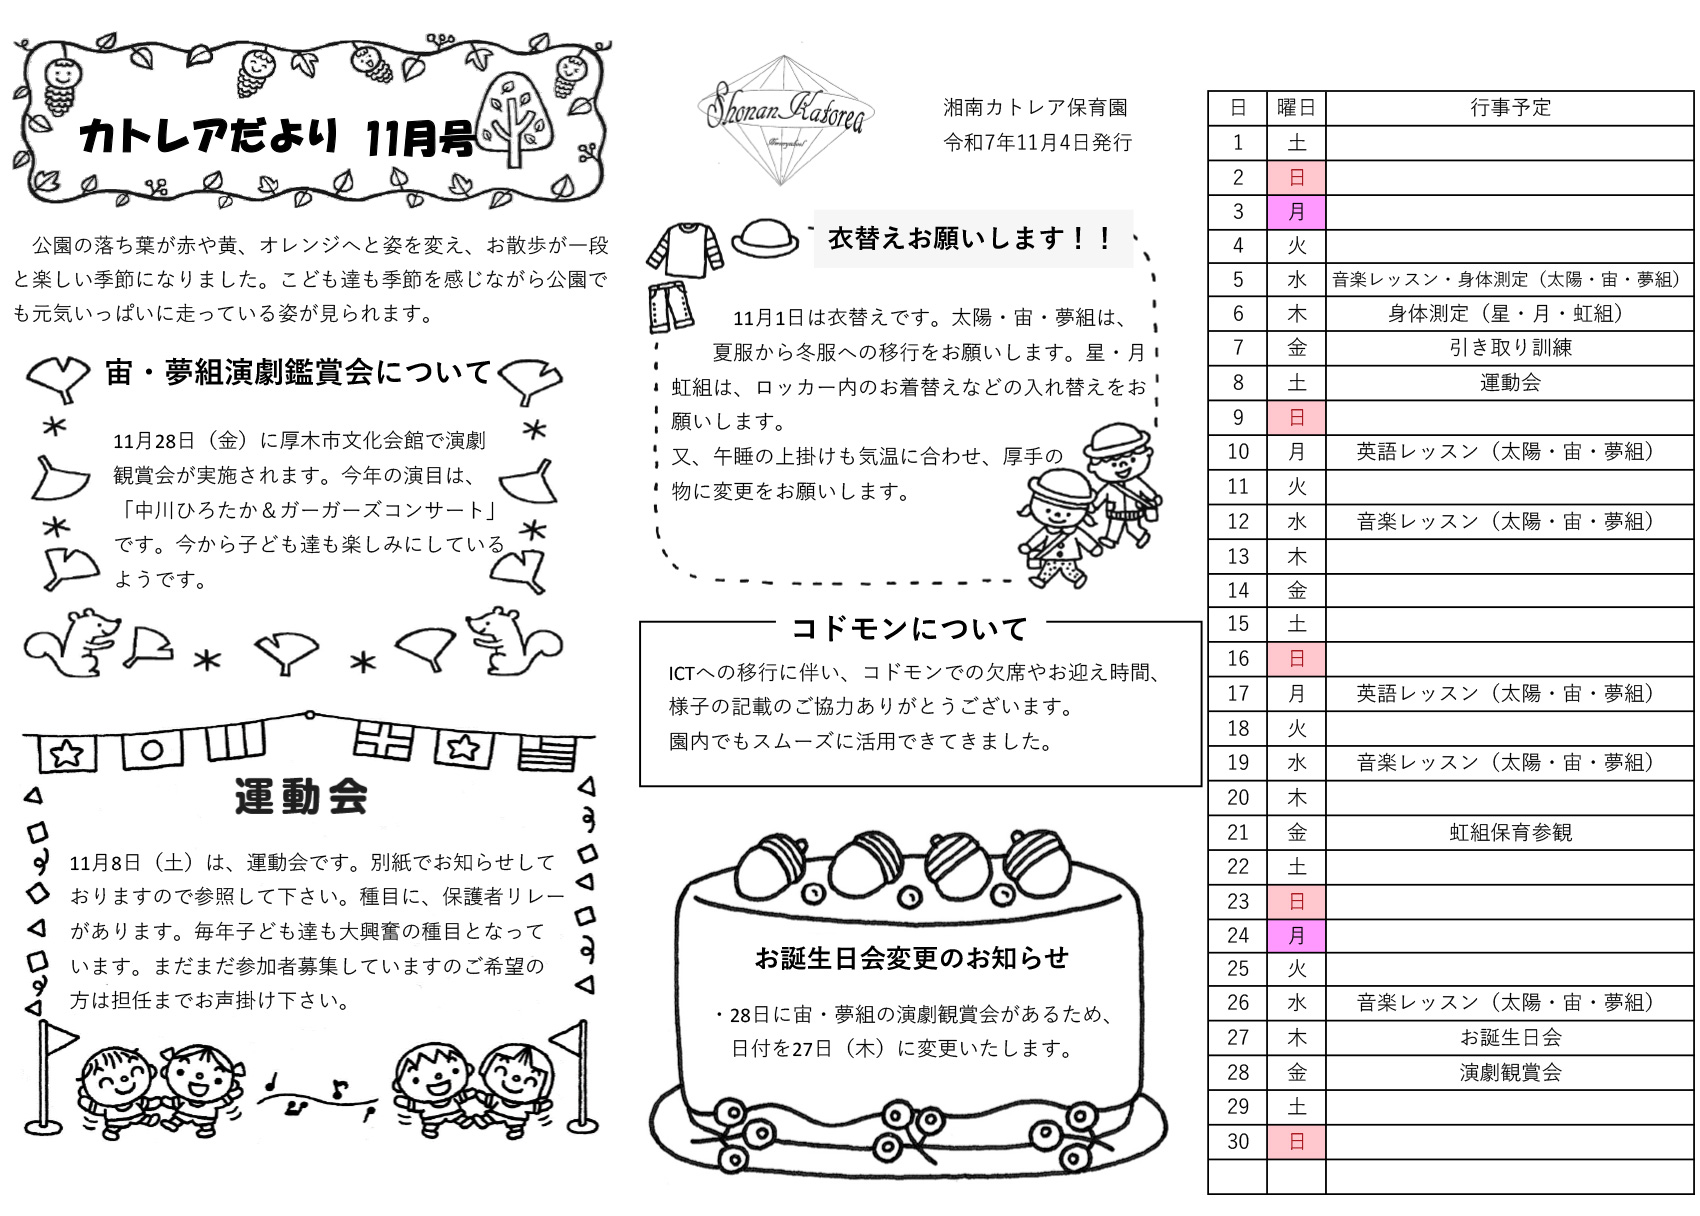 カトレアだより 11月号
公園の落ち葉が赤や黄、オレンジへと姿を変え、お散歩が一段
と楽しい季節になりました。こども達も季節を感じながら公園で
も元気いっぱいに走っている姿が見られます。
宙・夢組演劇鑑賞会について
11月28日（金）に厚木市文化会館で演劇
観賞会が実施されます。今年の演目は、
「中川ひろたか＆ガーガーズコンサート」
です。今から子ども達も楽しみにしている
ようです。
運動会
11月8日（土）は、運動会です。別紙でお知らせして
おりますので参照して下さい。種目に、保護者リレー
があります。毎年子ども達も大興奮の種目となって
います。まだまだ参加者募集していますのご希望の
方は担任までお声掛け下さい。
Shonan Katorea
湘南カトレア保育園
令和7年11月4日発行
衣替えお願いします！！
11月1日は衣替えです。太陽・宙・夢組は、
夏服から冬服への移行をお願いします。星・月
虹組は、ロッカー内のお着替えなどの入れ替えをお
願いします。
又、午睡の上掛けも気温に合わせ、厚手の
物に変更をお願いします。
コドモンについて
ICTへの移行に伴い、コドモンでの欠席やお迎え時間、
様子の記載のご協力ありがとうございます。
園内でもスムーズに活用できてきました。
お誕生日会変更のお知らせ
・28日に宙・夢組の演劇観賞会があるため、
日付を27日（木）に変更いたします。
日 曜日 行事予定
1 土
2 日
3 月
4 火
5 水 音楽レッスン・身体測定（太陽・宙・夢組）
6 木 身体測定（星・月・虹組）
7 金 引き取り訓練
8 土 運動会
9 日
10 月 英語レッスン（太陽・宙・夢組）
11 火
12 水 音楽レッスン（太陽・宙・夢組）
13 木
14 金
15 土
16 日
17 月 英語レッスン（太陽・宙・夢組）
18 火
19 水 音楽レッスン（太陽・宙・夢組）
20 木
21 金 虹組保育参観
22 土
23 日
24 月
25 火
26 水 音楽レッスン（太陽・宙・夢組）
27 木 お誕生日会
28 金 演劇観賞会
29 土
30 日